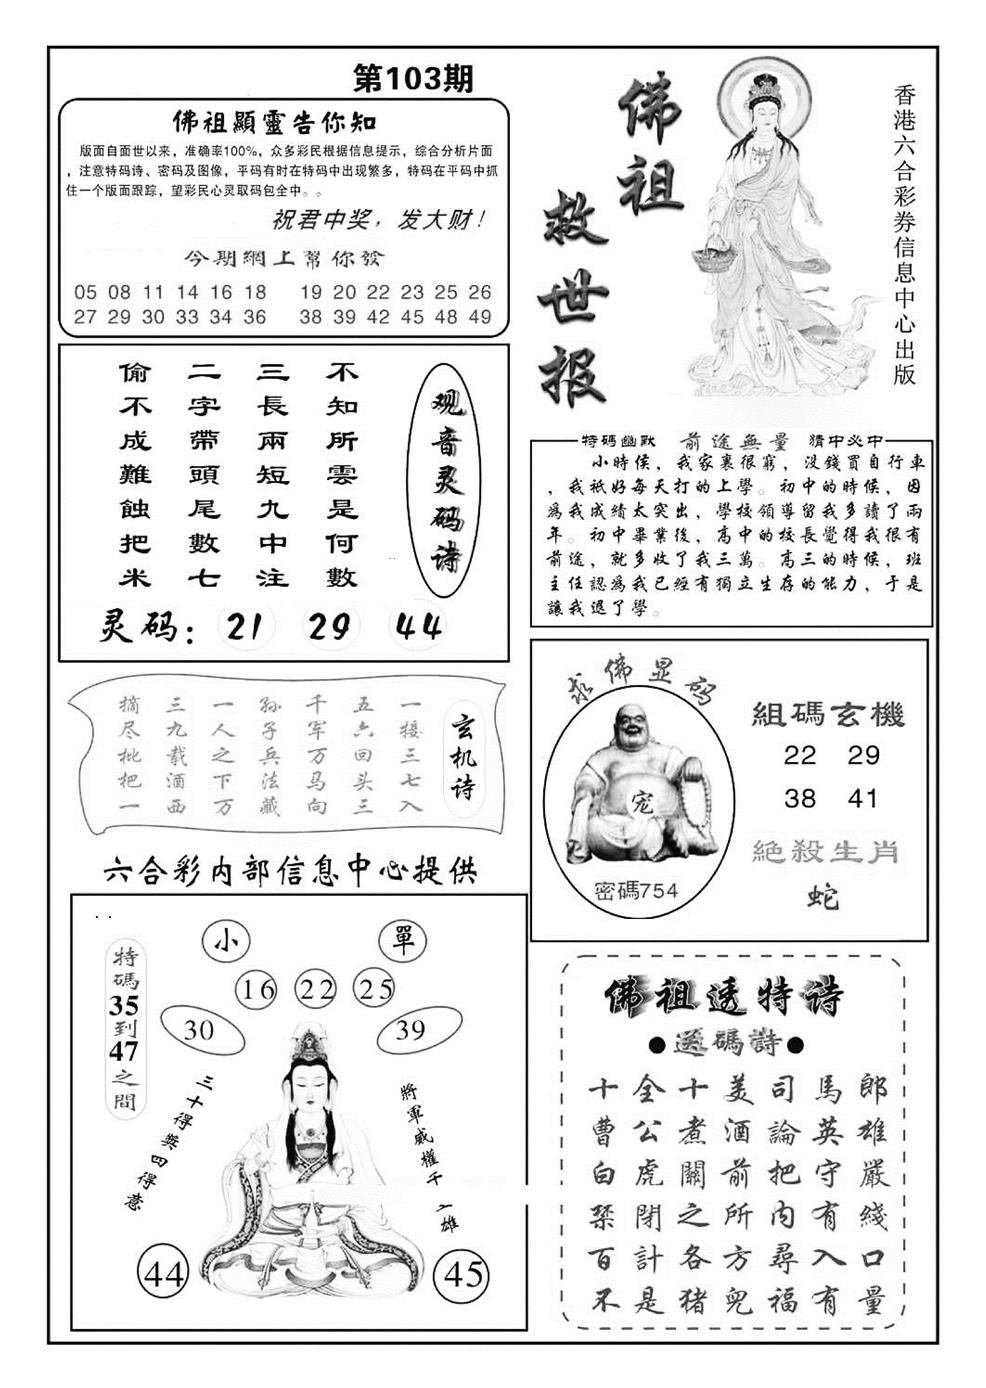 第103期
佛祖顯靈告你知
版面自面世以来，准确率100%，众多彩民根据信息提示，综合分析片面
，注意特码诗、密码及图像，平码有时在特码中出现繁多，特码在平码中抓
住一个版面跟踪，望彩民心灵取码包全中。。
祝君中奖，发大财！
今期網上幫你發
05 08 11 14 16 18 19 20 22 23 25 26
27 29 30 33 34 36 38 39 42 45 48 49
佛祖
救世报
香港六合彩券信息中心出版
观音灵码诗
不知所雲是何數
三長兩短九中注
二字帶頭尾數七
偷不成難蝕把米
灵码：21 29 44
特碼幽默 前途無量 猜中必中
小時侯，我家裏很窮，没錢買自行車
，我衹好每天打的上學。初中的時候，因
爲我成績太突出，學校領導留我多讀了兩
年。初中畢業後，高中的校長覺得我很有
前途，就多收了我三萬。高三的時候，班
主任認爲我已經有獨立生存的能力，于是
讓我退了學。
玄机诗
一接三七入
五六回头三
千军万马向
孙子兵法藏
一人之下万
三九载酒西
摘尽枇把一
六合彩内部信息中心提供
求佛显码
宠
密碼754
組碼玄機
22 29
38 41
絶殺生肖
蛇
特碼35到47之間
小 單
16 22 25
30 39
三十得獎四得意
將軍威權千
雄
44 45
佛祖透特诗
●送碼詩●
十全十美司馬郎
曹公煮酒論英雄
白虎關前把守嚴
禁閉之所内有綫
百計各方尋入口
不是猪兜福有量